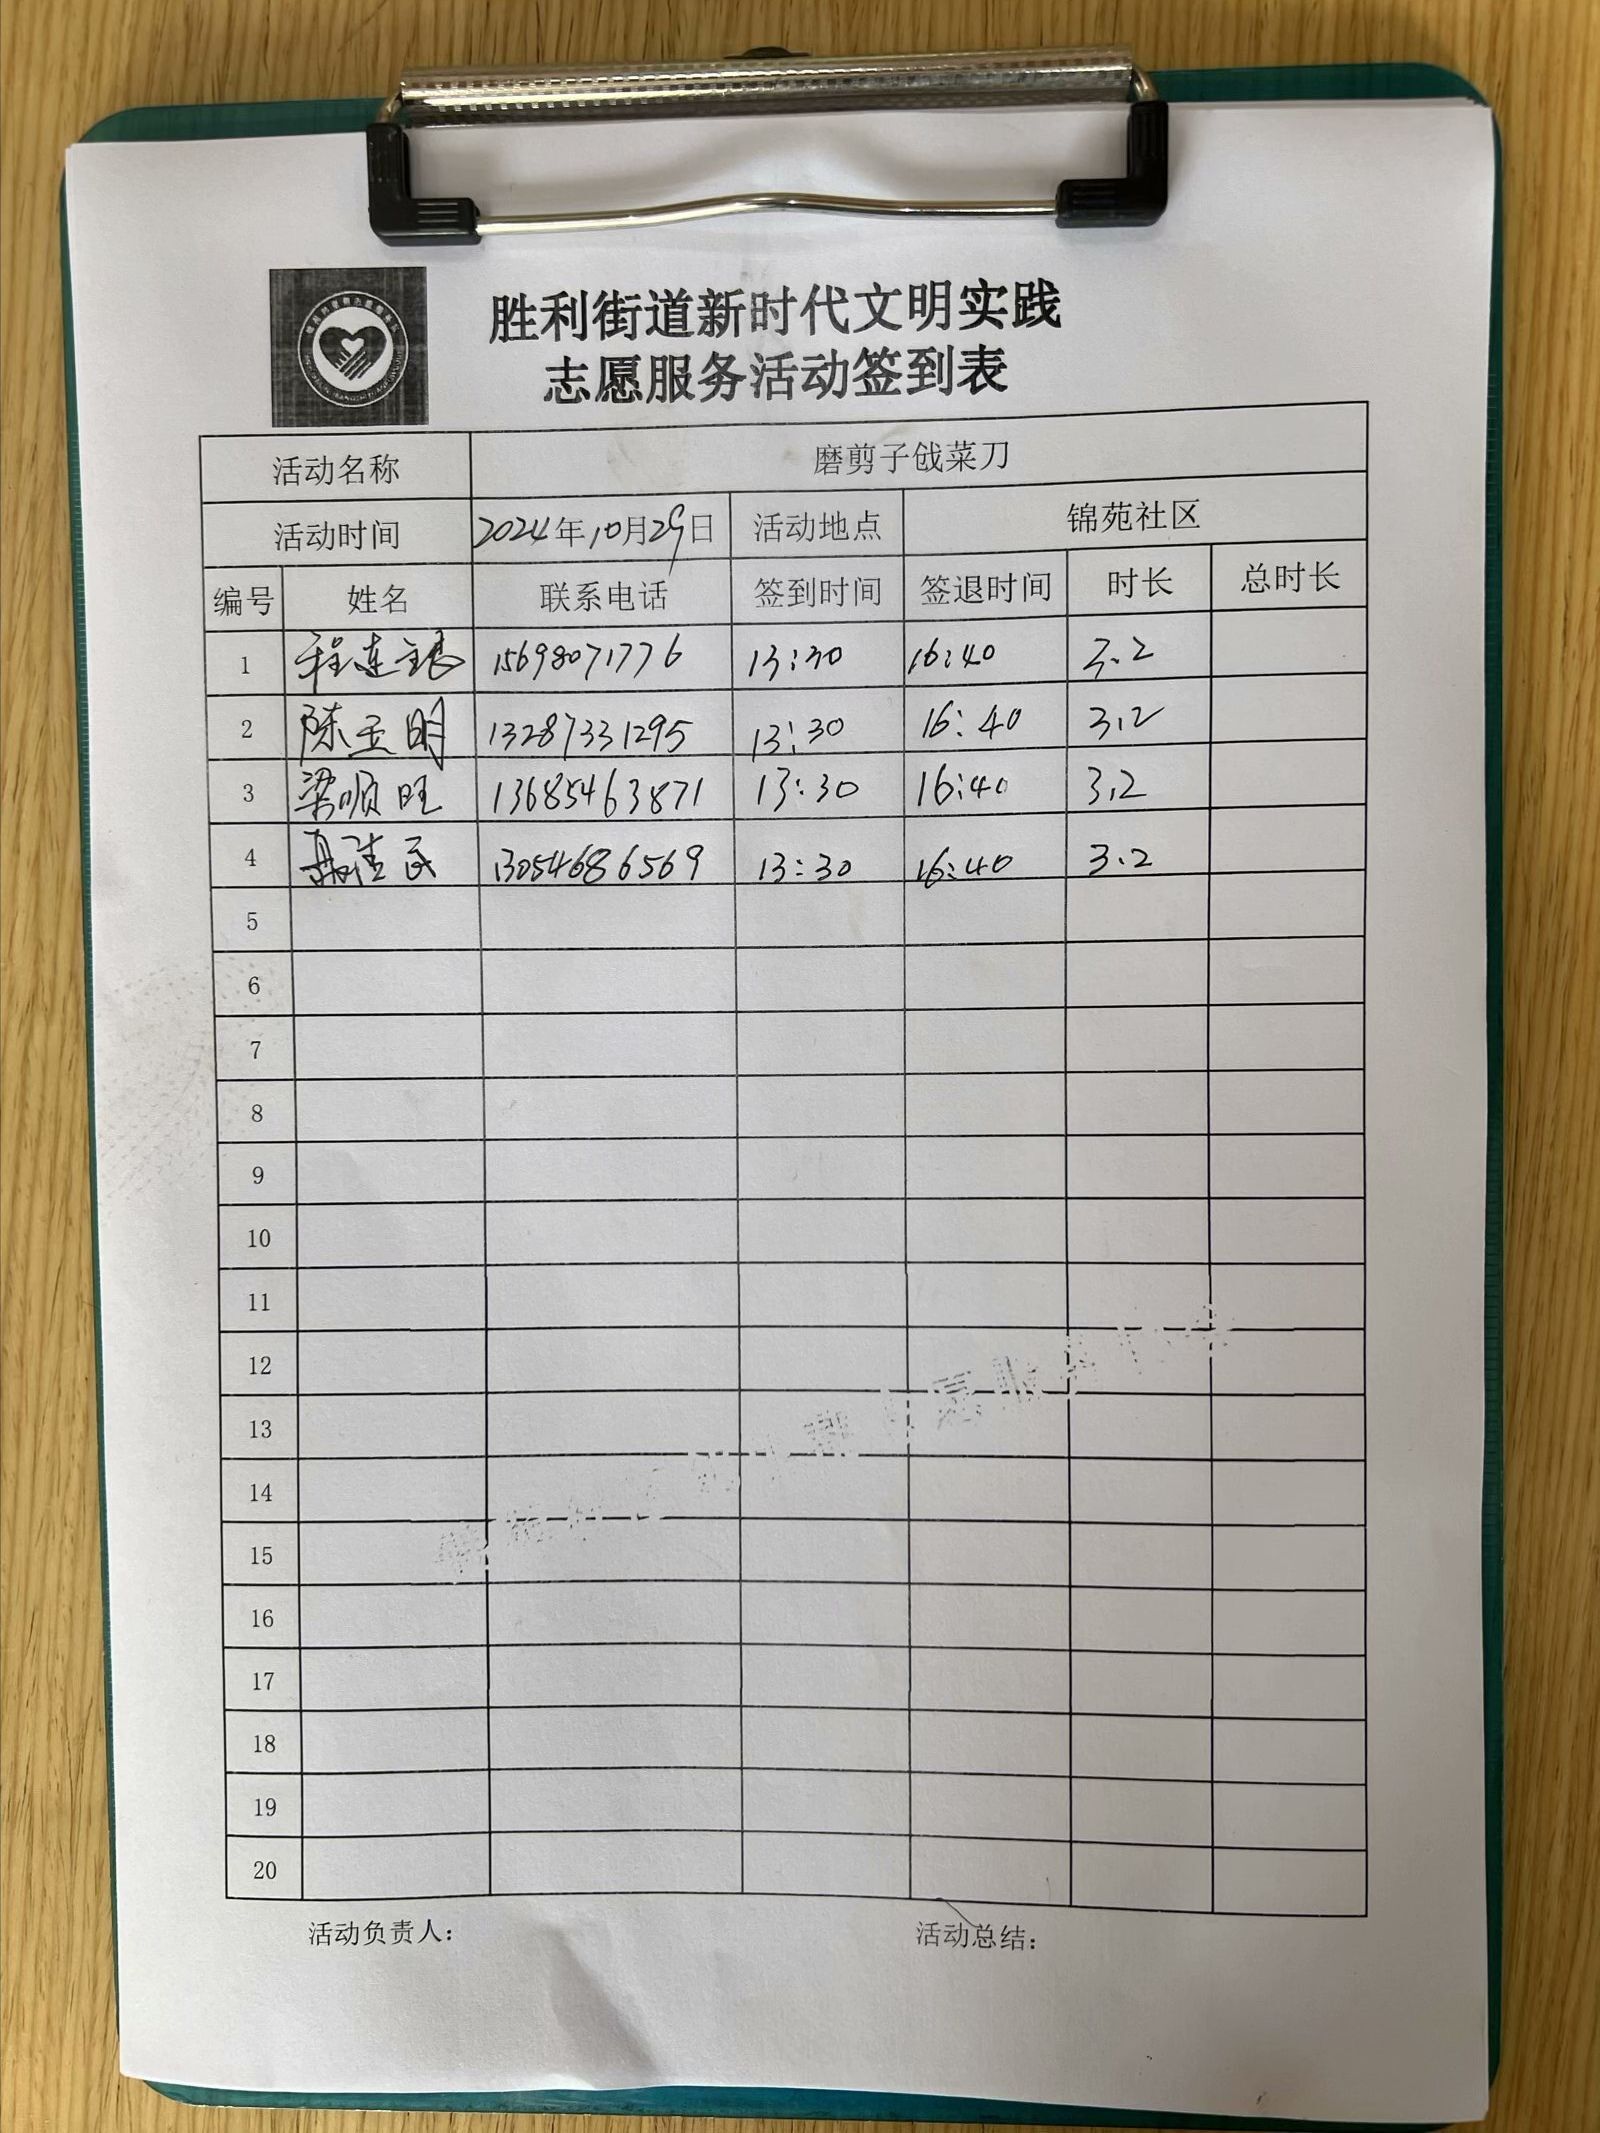 胜利街道新时代文明实践
志愿服务活动签到表
活动名称 磨剪子戗菜刀
活动时间 2024年10月29日 活动地点 锦苑社区
编号 姓名 联系电话 签到时间 签退时间 时长 总时长
1 程连 15698071776 13:30 16:40 3.2
2 陈玉明 13287331295 13:30 16:40 3.2
3 梁顺旺 13685463871 13:30 16:40 3.2
4 民 13054686569 13:30 16:40 3.2
5
6
7
8
9
10
11
12
13
14
15
16
17
18
19
20
活动负责人: 活动总结: